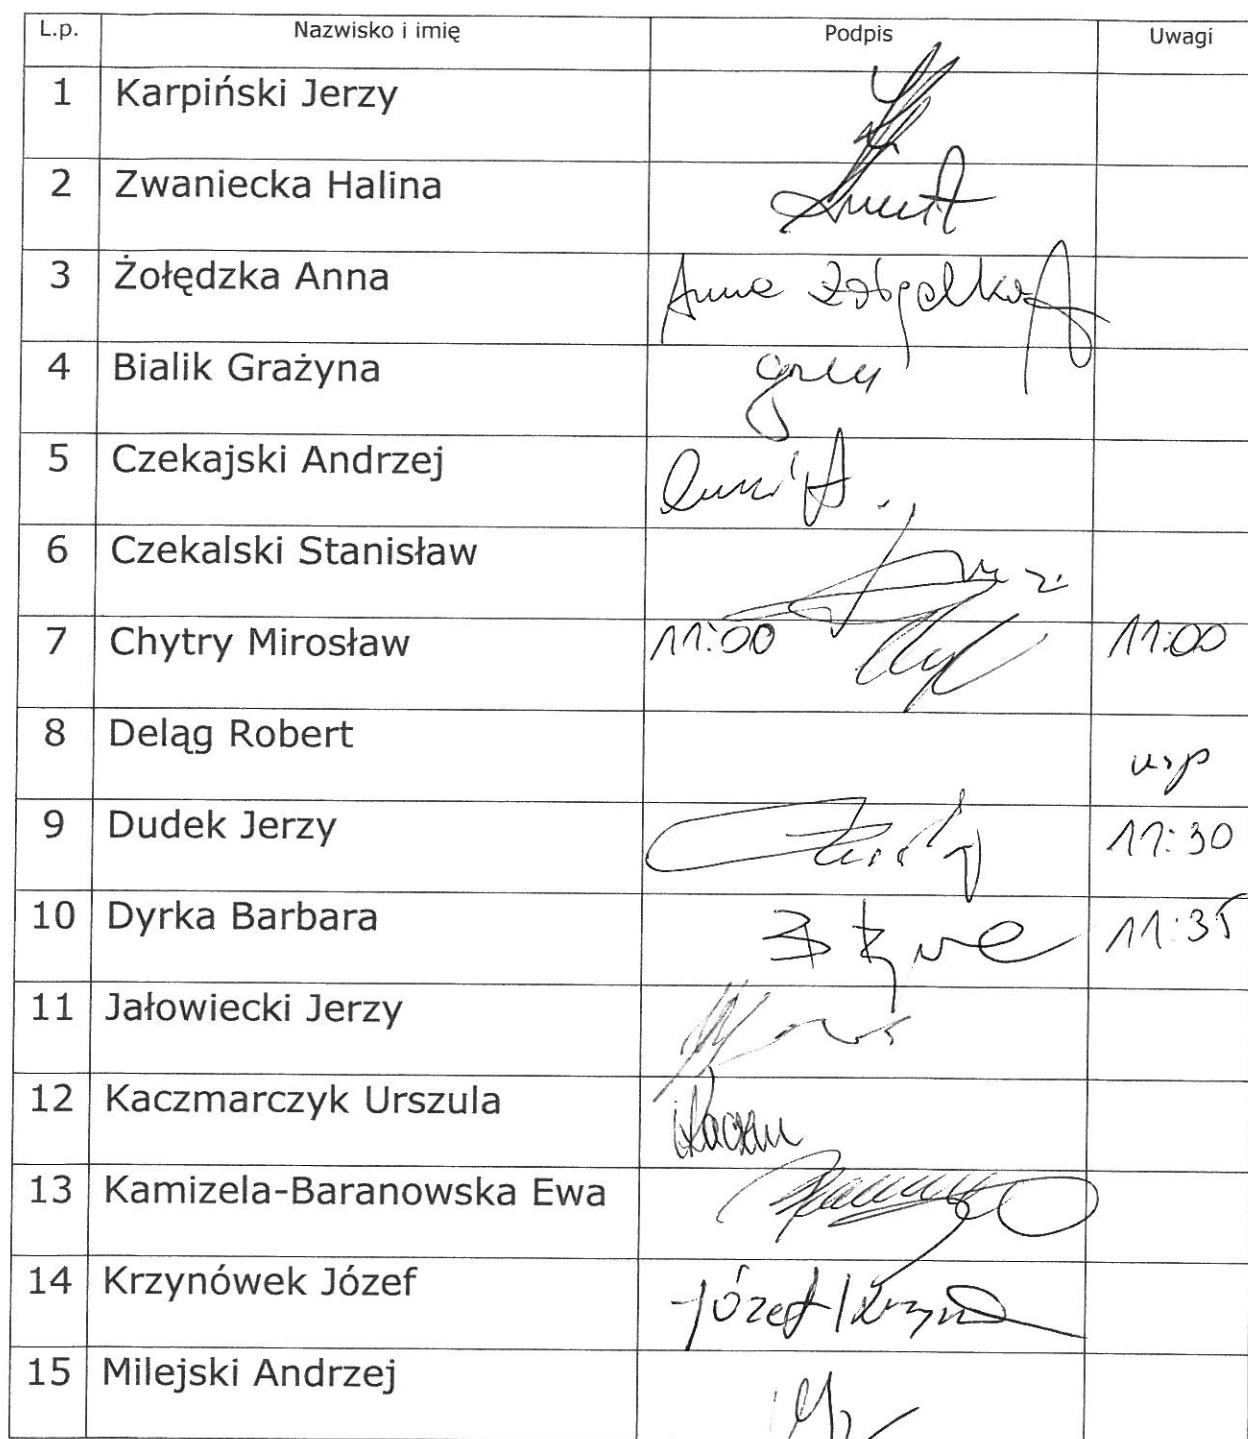 L.p. Nazwisko i imię Podpis Uwagi
1 Karpiński Jerzy
2 Zwaniecka Halina
3 Żołędzka Anna Anna
4 Bialik Grażyna
5 Czekajski Andrzej
6 Czekalski Stanisław
7 Chytry Mirosław 11:00 11:00
8 Deląg Robert usp
9 Dudek Jerzy 11:30
10 Dyrka Barbara 11:35
11 Jałowiecki Jerzy
12 Kaczmarczyk Urszula
13 Kamizela-Baranowska Ewa
14 Krzynówek Józef Józef
15 Milejski Andrzej